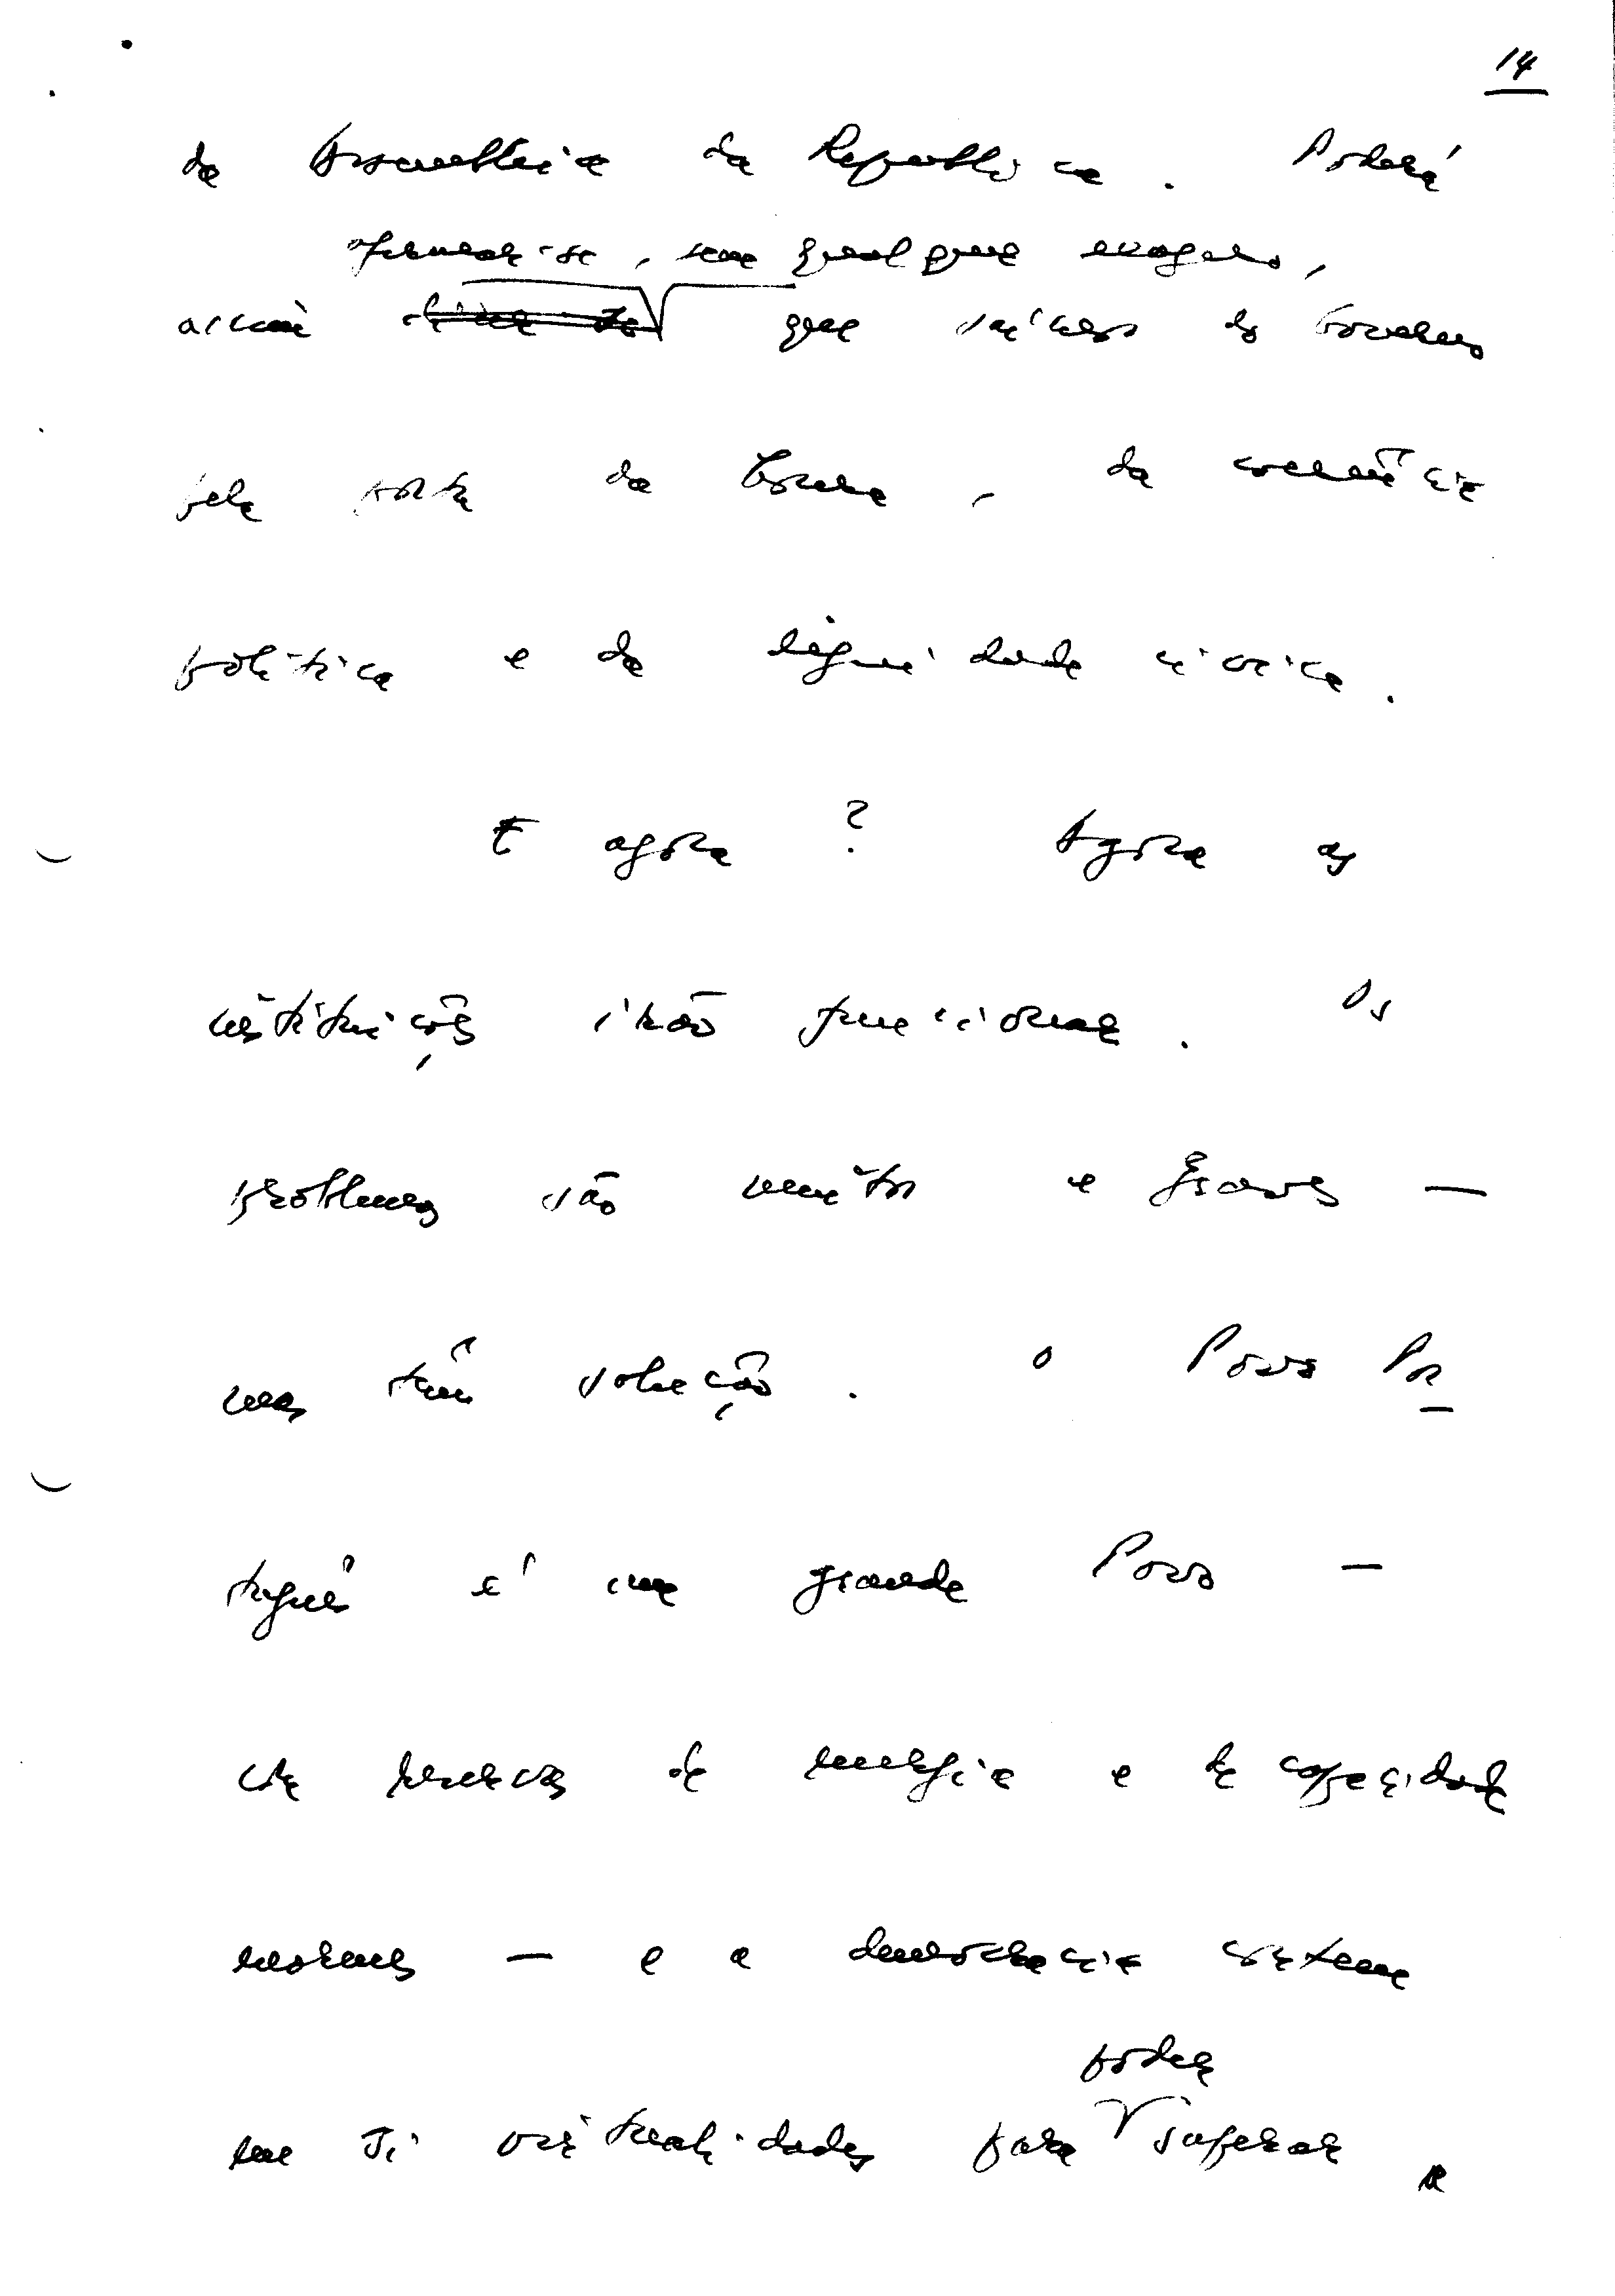 14
da Assembleia da República. Poderá
afirmar-se, sem qualquer exagero,
assim que saímos do Governo
pela porta da honra, da coerência
política e da dignidade cívica.
E agora? Agora as
instituições irão funcionar. Os
problemas são muitos e graves —
mas têm solução. O Povo Por
tuguês é um grande Povo —
com reservas de energia e de capacidade
enormes — e a democracia contem
em si virtualidades para poder superar